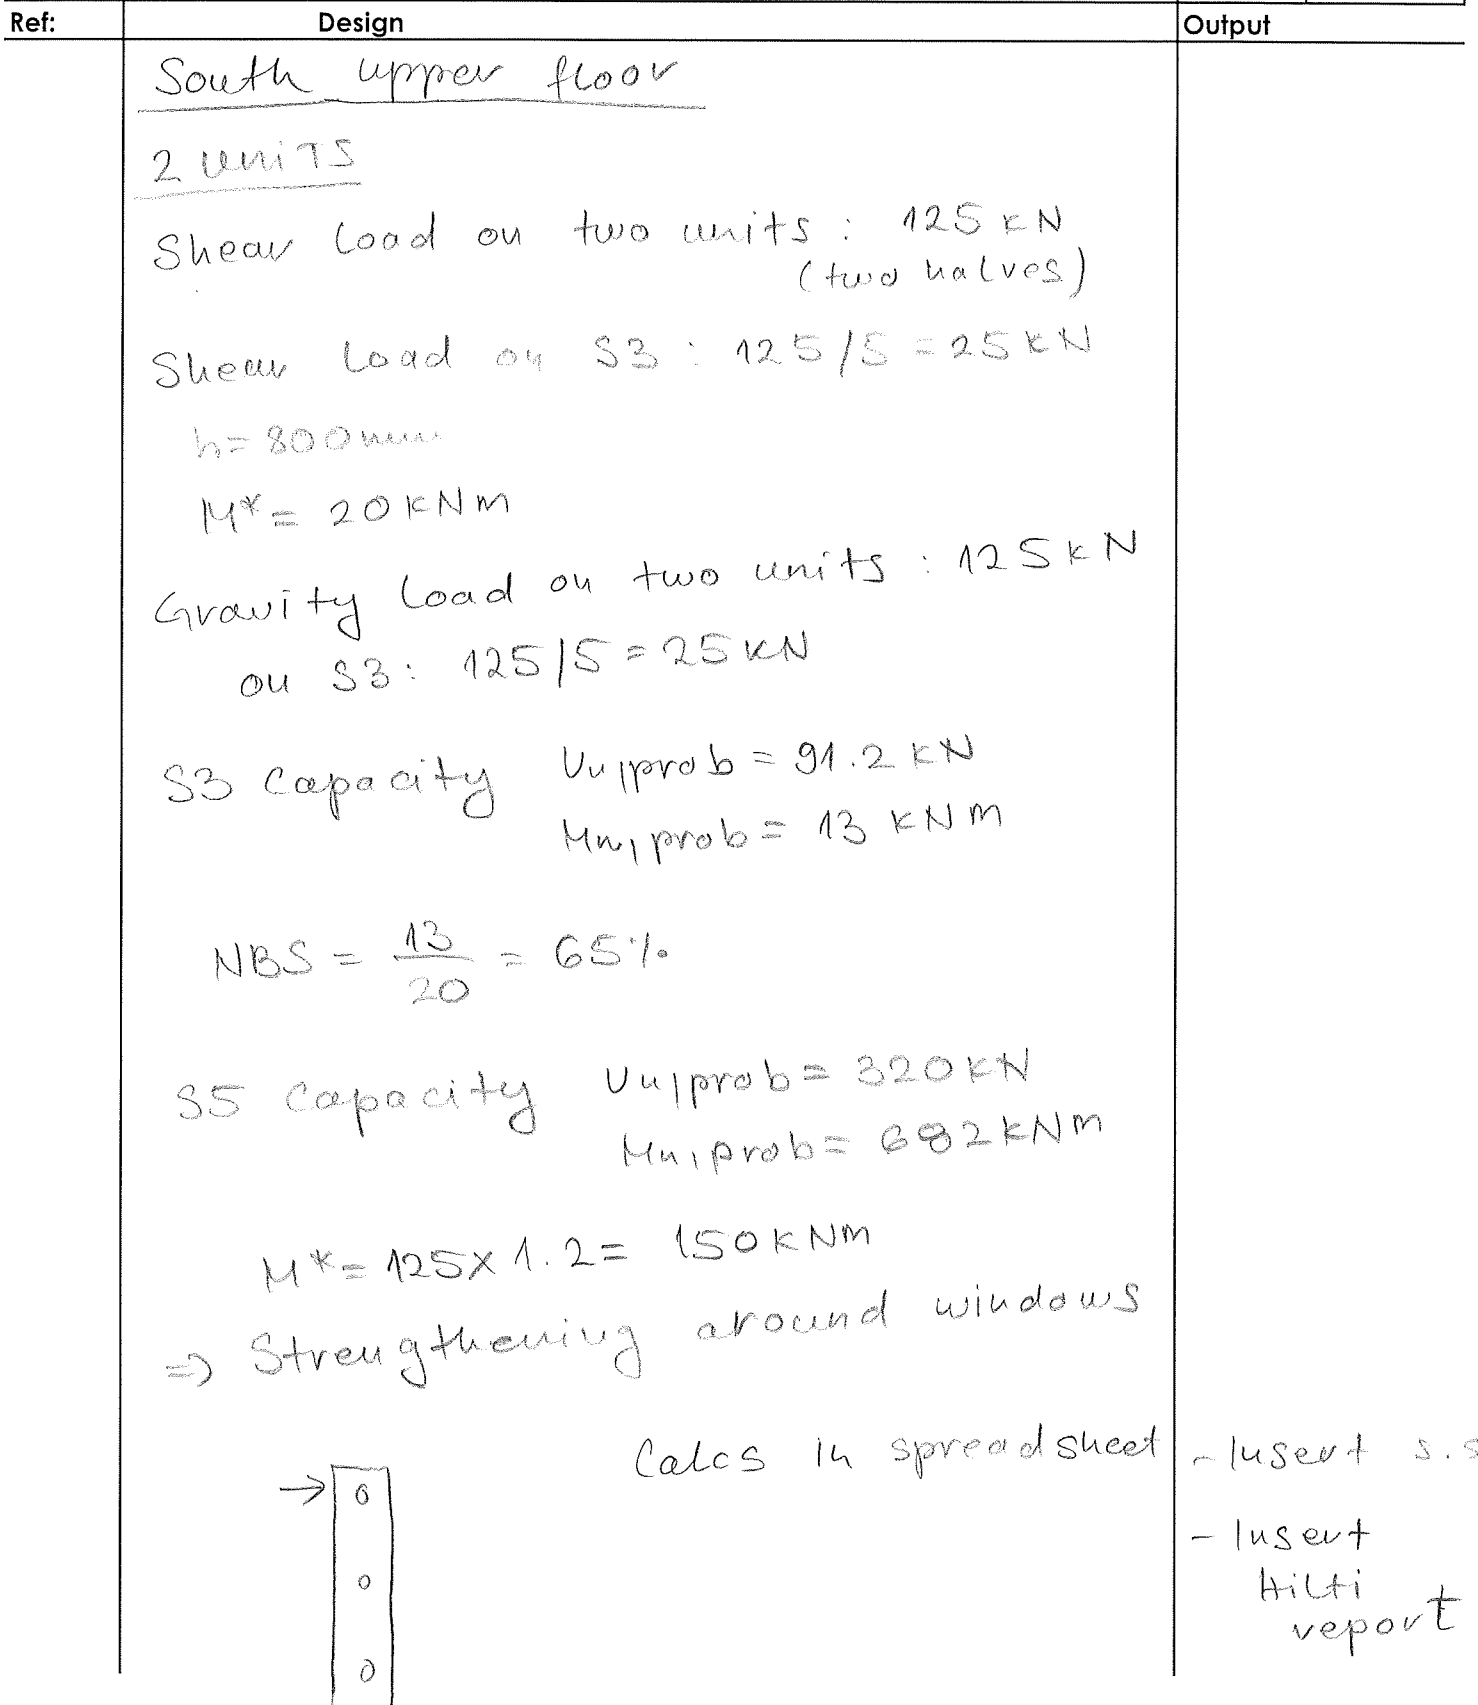 Ref: Design Output
South upper floor
2 units
Shear load on two units : 125 kN
(two halves)
Shear load on S3 : 125/5 = 25 kN
h= 800mm
M* = 20 kNm
Gravity load on two units : 125 kN
on S3: 125/5 = 25 kN
S3 capacity Vn,prob = 91.2 kN
Mn,prob = 13 kNm
NBS = 13/20 = 65%
S5 capacity Vn,prob = 320 kN
Mn,prob = 682 kNm
M* = 125 x 1.2 = 150 kNm
=> Strengthening around windows
Calcs in spreadsheet - Insert s.s
- Insert
Hilti
report